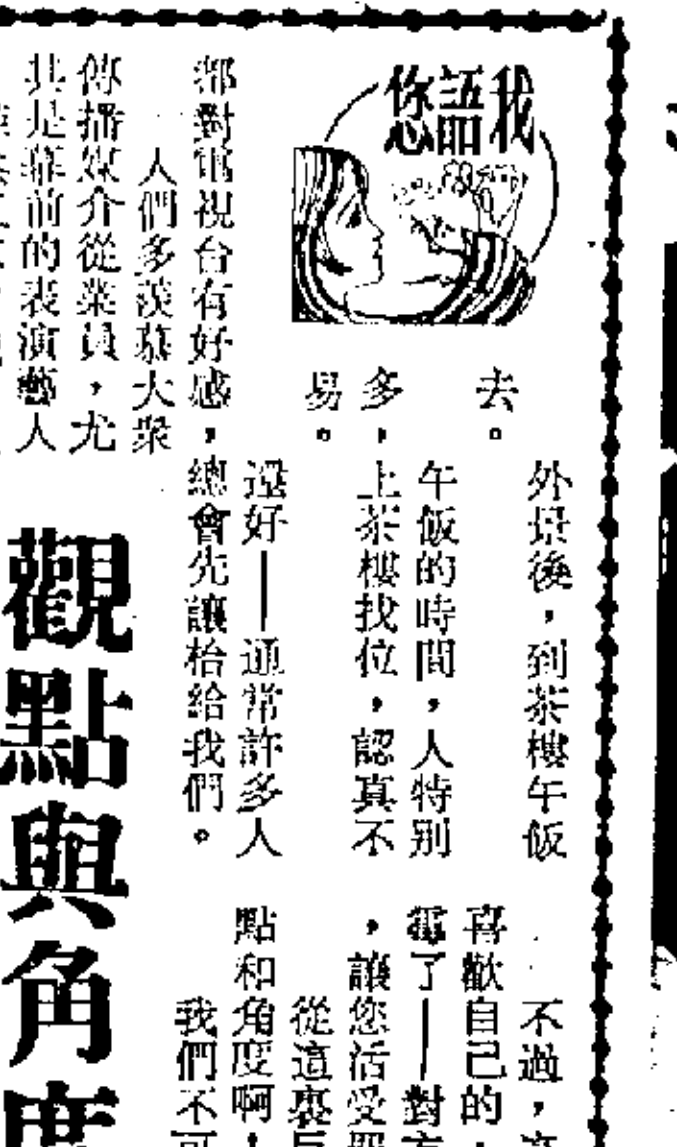 我語您
外景後，到茶樓午飯
去。
午飯的時間，人特別
多，上茶樓找位，認真不
易。
還好——通常許多人
都對電視台有好感，總會先讓枱給我們。
人們多羨慕大眾
傳播媒介從業員，尤
其是幕前的表演藝人
觀點與角度
不過，
喜歡自己的，
了——對方
，讓您活受罪
從這裏
點和角度啊！
我們不可